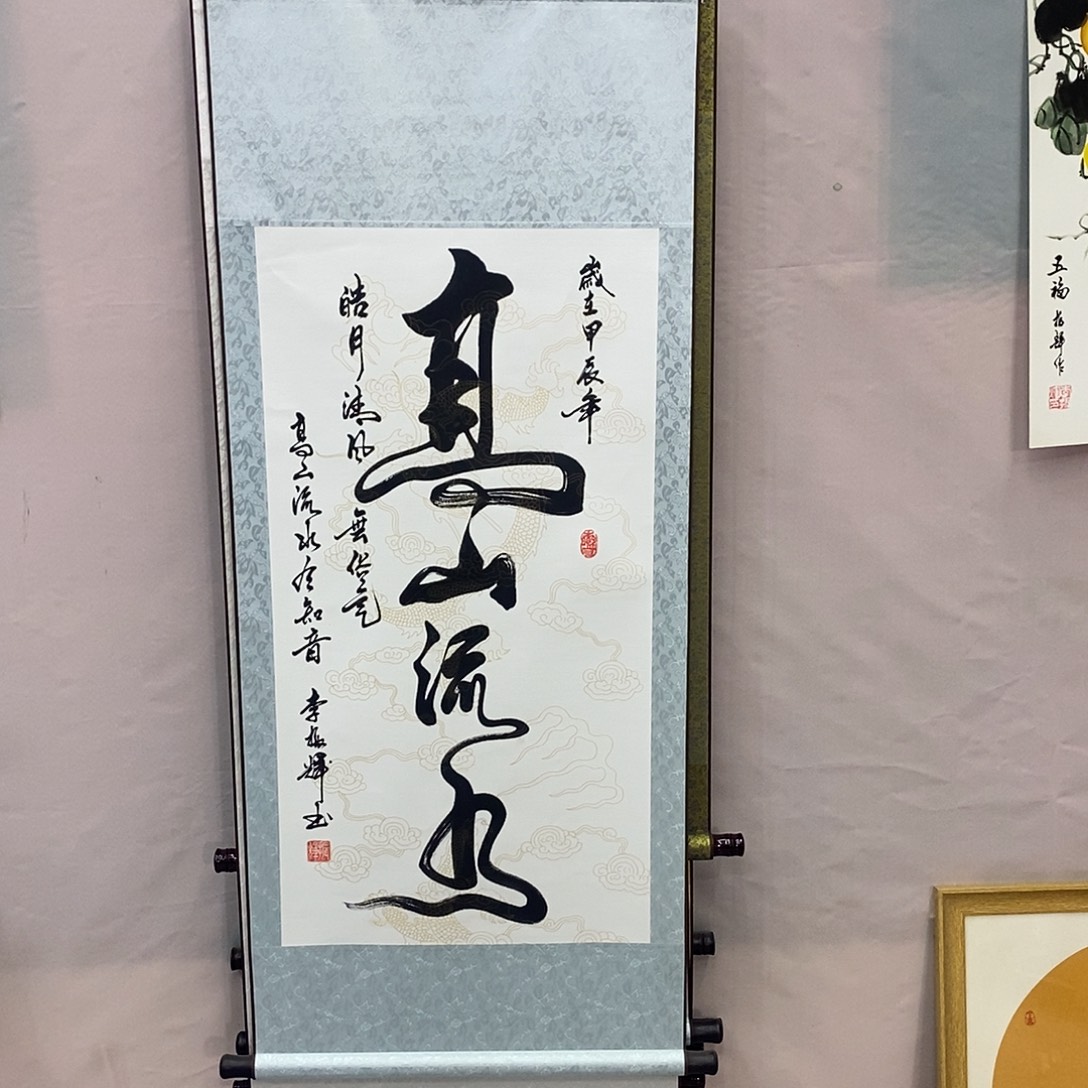 歲在甲辰年
高山流水
皓月清風無俗氣
高山流水有知音
李振輝书
五福 振輝作